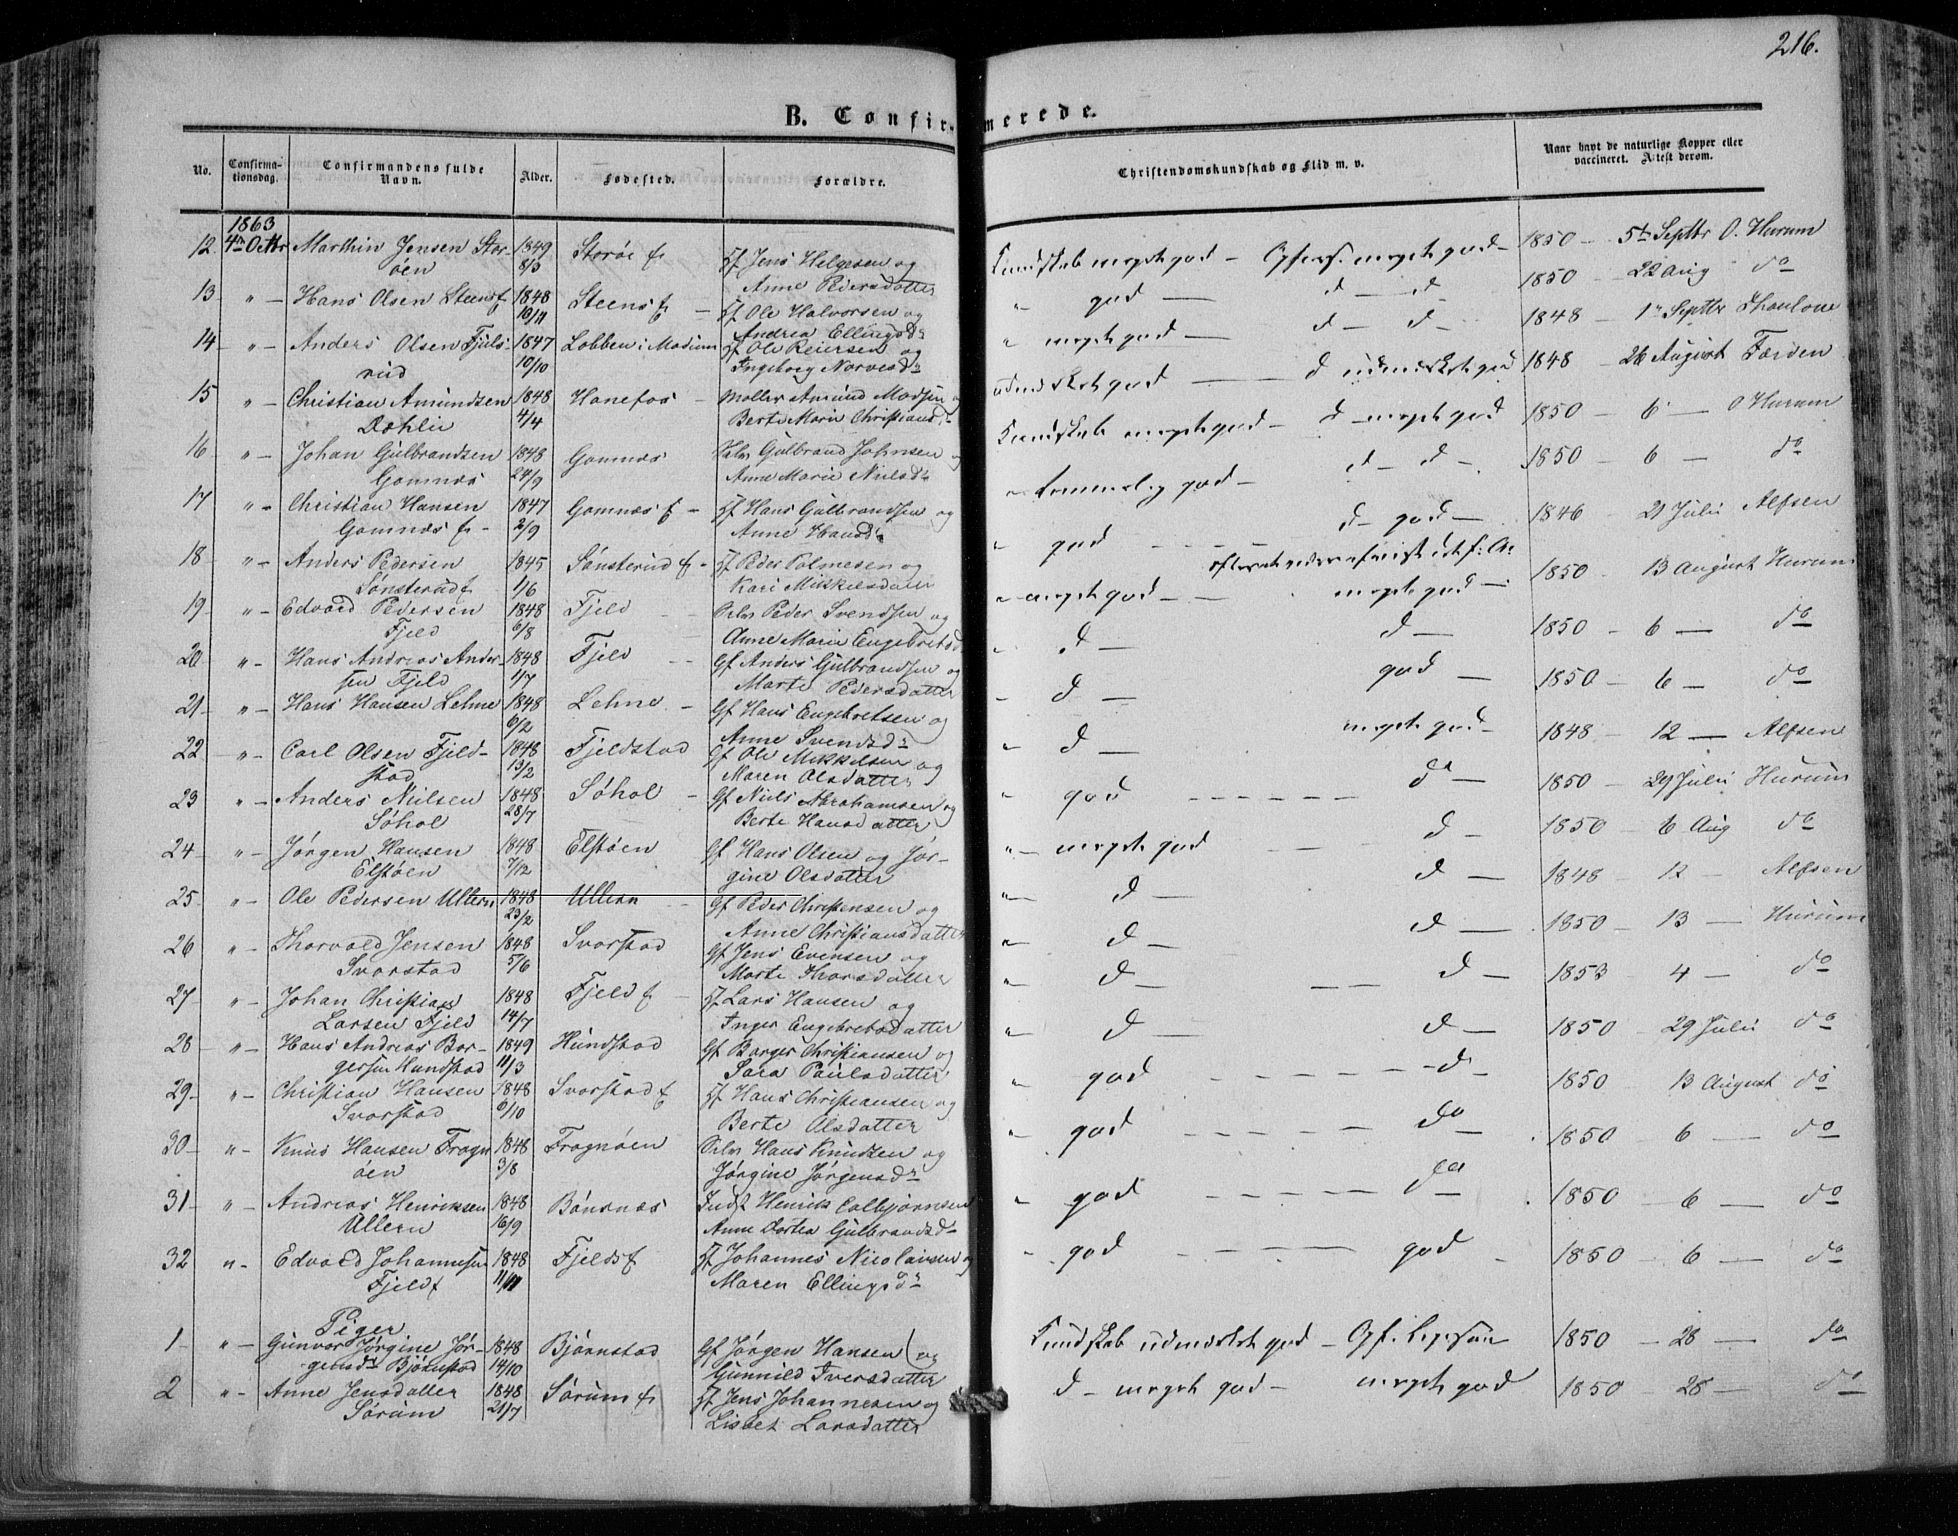 216.
B. Confirmerede.
No. Confirmationsdag. Confirmandens fulde Navn. Alder. Fødested. Forældre. Christendomskundskab og Flid m. v. Naar havt de naturlige Kopper eller vaccineret. Attest derom.
1863
12 4de Octbr Marthin Jensen Storøen 1849 8/3 Storøe Jens Helgesen og Anne Pedersdatter Kundskab meget god - Opførs. meget god - 1850 - 5te Septbr O. Hurum
13 " - Hans Olsen Steens 1848 10/11 Steens Ole Halvorsen og Andrea Ellingsd. " god - d - d 1850 22 Aug do
14 " - Anders Olsen Fjulsrud 1847 10/10 Lobben i Modum Ole Reiersen og Ingeborg Narvesd. " meget god - d - d - 1848 - 1 Septbr Thaulow
15 " - Christian Amundsen Dæhlie 1848 4/4 Hønefos - Møller Amund Madsen og Berte Marie Christiansd. udmærket god - d udmærket god 1848 - 26 August Færden
16 " - Johan Gulbrandsen Gomnæs 1848 24/9 Gomnæs Gulbrand Johnsen og Anne Marie Nielsd. Kundskab meget god - d - meget god 1850 - 6 - O Hurum
17 " - Christian Hansen Gomnæs 1847 2/9 Gomnæs - Hans Gulbrandsen og Anne Hansd. " temmelig god - d - d - 1850 - 6 - do
18 " - Anders Pedersen Sønsterud 1845 1/6 Sønsterud - Peder Polmesen og Kari Mikkelsdatter " god - d - god - 1846 21 Juli Alfsen
19 " - Edvard Pedersen Fjeld 1848 6/8 Fjeld - Peder Svendsen og Anne Marie Engebretsd. " meget god - meget god - 1850 - 13 August Hurum
20 " - Hans Andreas Andersen Fjeld 1848 1/7 Fjeld - Gf Anders Gulbrandsen og Marte Pedersdatter " d - d - 1850 - 6 - do
21 " - Hans Hansen Lehne 1848 6/2 Lehne - Gf Hans Engebretsen og Anne Svendsd. " d - god - 1850 - 6 - do
22 " - Carl Olsen Fjeldstad 1848 13/2 Fjeldstad Gf Ole Mikkelsen og Maren Olsdatter " d - meget god - 1848 - 12 - Alfsen
23 " - Anders Nielsen Søhol 1848 28/7 Søhol - Gf Niels Abrahamsen og Berte Hansdatter " god - do - 1850 - 29 Juli Hurum
24 " - Jørgen Hansen Elstøen 1848 7/12 Elstøen Gf Hans Olsen og Jørgine Olsdatter " - meget god - d - 1850 - 6 Aug do
25 " - Ole Pedersen Ullern 1848 23/2 Ullern - Gf Peder Christensen og Anne Christiansdatter " - d - d - 1848 - 12 - Alfsen
26 " - Thorvald Jensen Svarstad 1848 5/6 Svarstad Gf Jens Evensen og Marte Thorsdatter " d - d - 1850 - 13 - Hurum
27 " - Johan Christian Larsen Fjeld 1848 14/7 Fjeld - Lars Hansen og Inger Engebretsdatter " d - d - 1853 - 4 - do
28 " - Hans Andreas Borgersen Hundstad 1849 11/3 Hundstad Gf Borger Christiansen og Sara Paulsdatter " d - d - 1850 - 29 Juli do
29 " - Christian Hansen Svarstad 1848 6/10 Svarstad Hans Christiansen og Berte Olsdatter " god - d - 1850 - 13 August do
30 " - Knud Hansen Frognøen 1848 3/8 Frognøen Hans Knudsen og Jørgine Jørgensd. " god - do - 1850 - 6 - do
31 " - Andreas Henriksen Ullern 1848 16/9 Bønsnæs Indst Henrik Colbjørnsen Anne Dortea Gulbrandsd. " god - do - 1850 - 6 - do
32 " - Edvard Johannesen Fjeld 1848 11/11 Fjelds Johannes Nicolaisen og Maren Ellingsd. " god - god - 1850 - 6 - do
Piger
1 " - Gunvor Jørgine Jørgensd. Bjørnstad 1848 14/10 Bjørnstad Gf Jørgen Hansen og Gunnild Iversdatter Kundskab udmærket god - Opf. 1850 - 28 - do
2 " - Anne Jensdatter Sørum 1848 21/7 Sørum Jens Johannesen og Lisbet Larsdatter d - meget god - meget god 1850 - 28 - do